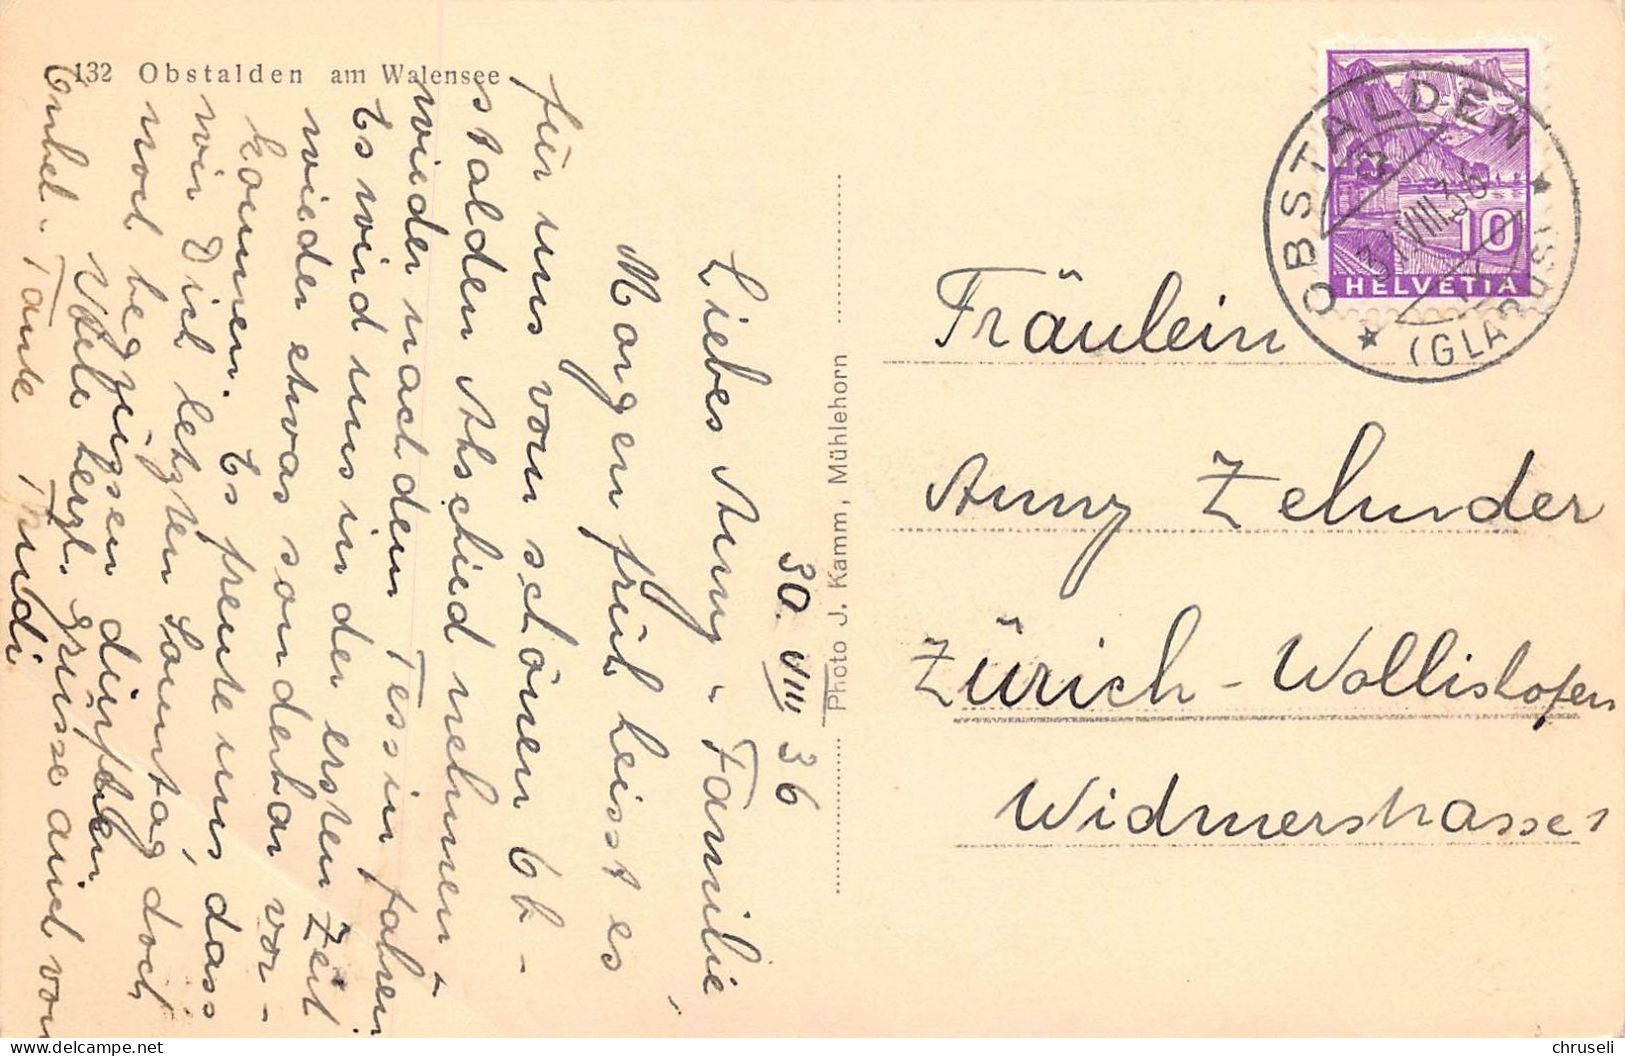 132 Obstalden am Walensee
30. VIII 36
Liebes Anny u Familie
Morgen früh heisst es
für uns vom schönen Ob-
stalden Abschied nehmen u
wieder nach dem Tessin fahren
Es wird uns in der ersten Zeit
wieder etwas sonderbar vor-
kommen. Es freute uns dass
wir Dich letzten Sonntag doch
noch begrüssen dürften
Viele herzl. Grüsse auch von
Tante Trudi
Photo J. Kamm, Mühlehorn
OBSTALDEN
(GLARUS)
31.VIII.36
IX
10
HELVETIA
Fräulein
Anny Zehnder
Zürich-Wollishofen
Widmerstrasse 1
chruseli